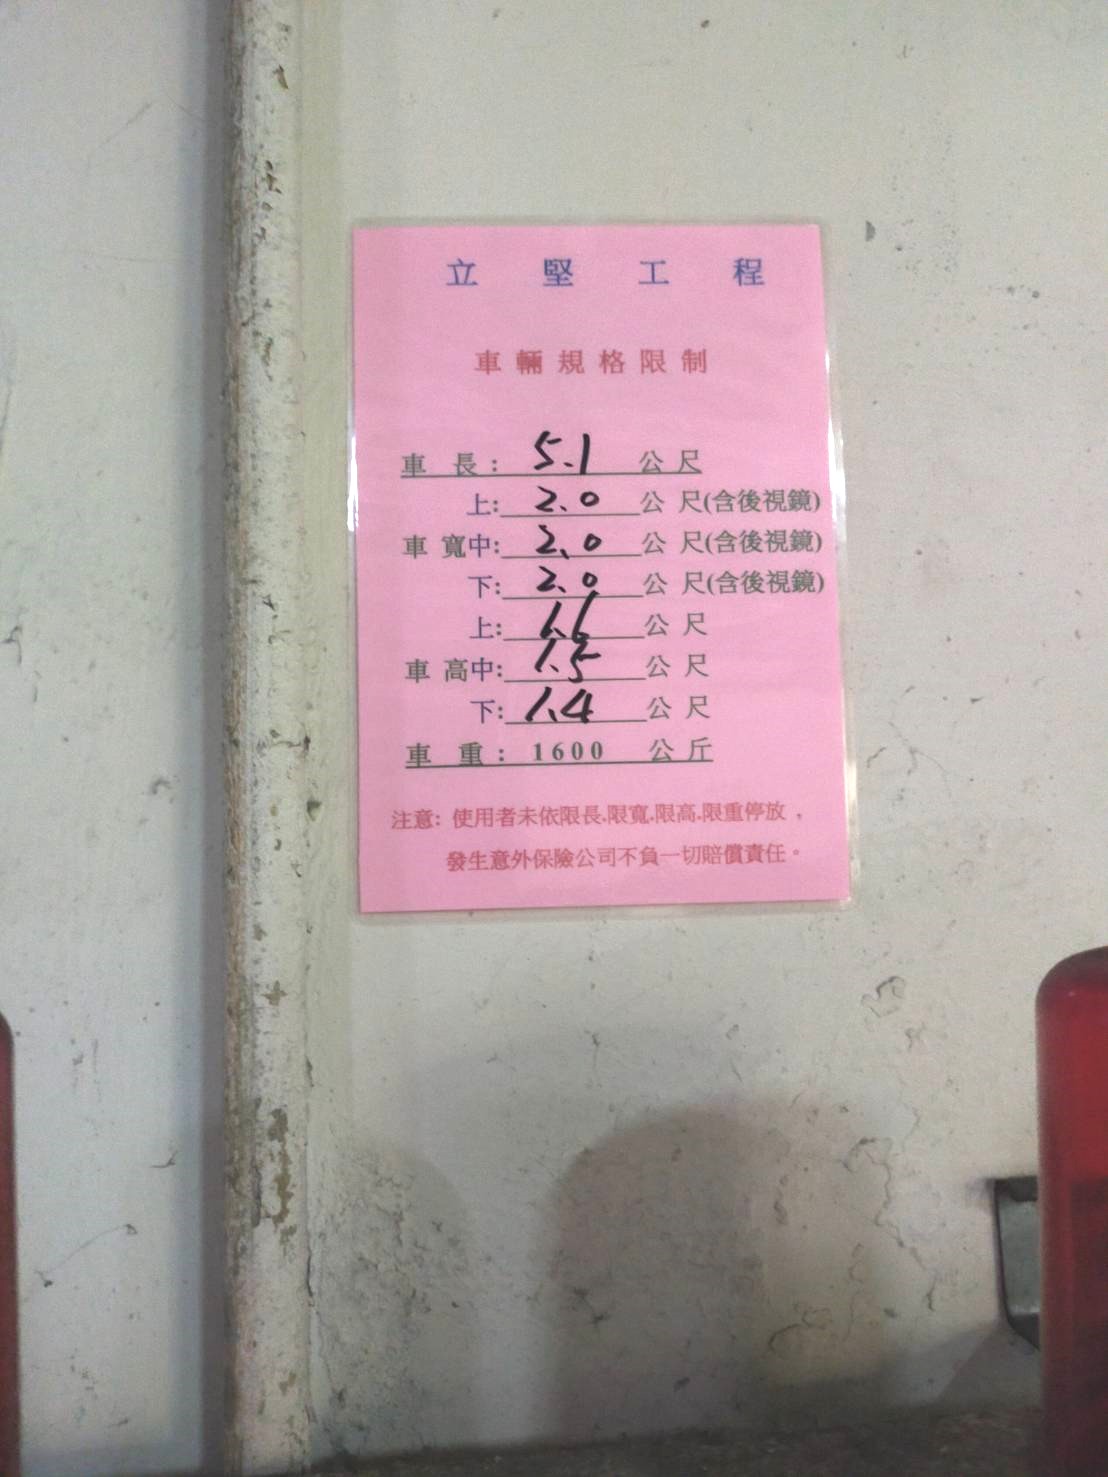 立堅工程
車輛規格限制
車長：5.1公尺
上：2.0公尺(含後視鏡)
車寬中：2.0公尺(含後視鏡)
下：2.0公尺(含後視鏡)
上：1.6公尺
車高中：1.5公尺
下：1.4公尺
車重：1600公斤
注意：使用者未依限長.限寬.限高.限重停放，
發生意外保險公司不負一切賠償責任。